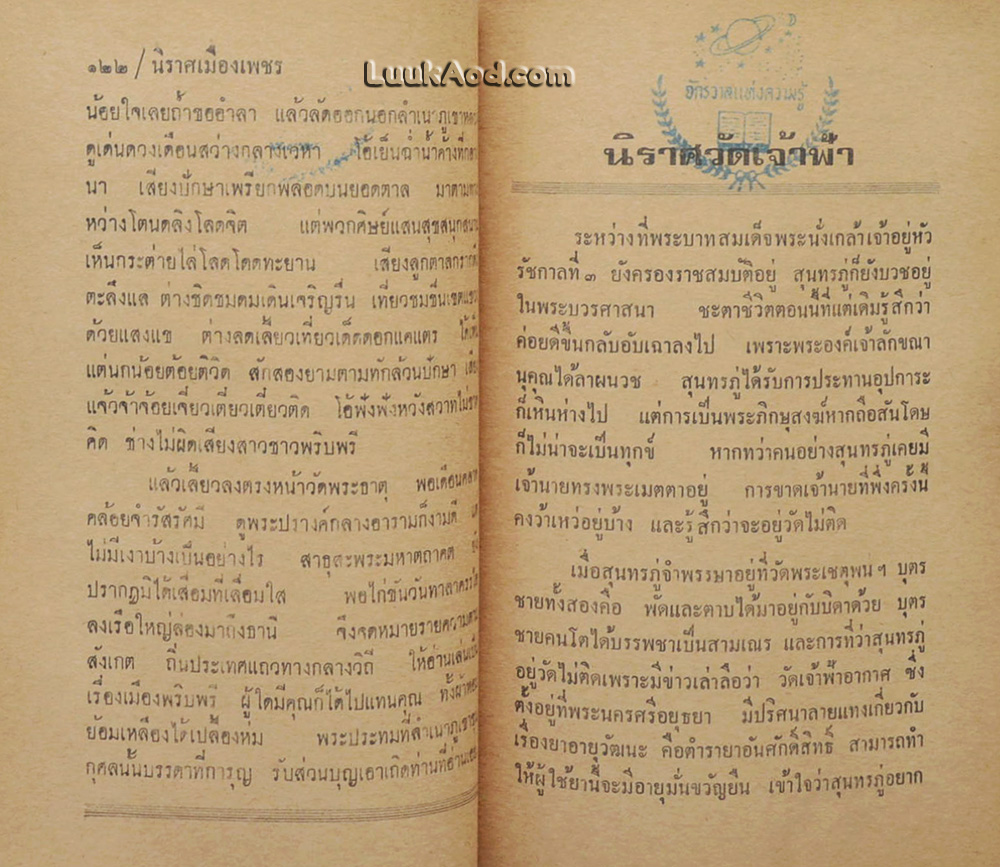 ๑๒๒ / นิราศเมืองเพชร
LuukAod.com
น้อยใจเลยถ้ำขออำลา แล้วลัดออกนอกลำเนาภูเขาหลวง
ดูเด่นดวงเดือนสว่างกลางเวหา โอ้เย็นฉ่ำน้ำค้างที่กลาง
นา เสียงปักษาเพรียกพลอดบนยอดตาล มาตามทาง
หว่างโตนดลิงโลดจิต แต่พวกศิษย์แสนสุขสนุกสนาน
เห็นกระต่ายไล่โลดโดดทะยาน เสียงลูกตาลกรากตึง
ตะลึงแล ต่างชิดชมดมเดินเจริญรื่น เที่ยวชมชื่นเขตแขวง
ด้วยแสงแข ต่างลดเลี้ยวเที่ยวเด็ดดอกแคแตร ได้เห็น
แต่นกน้อยต้อยติวิด สักสองยามตามทักล้วนปักษา เสียง
แจ้วจ้าจ้อยเจี่ยวเตี่ยวเตี่ยวติด โอ้ฟังฟังหวังสวาทไม่ขาด
คิด ช่างไม่ผิดเสียงสาวชาวพริบพรี
แล้วเลี้ยวลงตรงหน้าวัดพระธาตุ พอเดือนคลาด
คล้อยจำรัสรัศมี ดูพระปรางค์กลางอารามก็งามดี แต่
ไม่มีเงาบ้างเป็นอย่างไร สาธุสะพระมหาตถาคต ยัง
ปรากฏมิได้เสื่อมที่เลื่อมใส พอไก่ขันวันทาลาครรไล
ลงเรือใหญ่ล่องมาถึงธานี จึงจดหมายรายความตาม
สังเกต ถิ่นประเทศแถวทางกลางวิถี ให้อ่านเล่นเป็น
เรื่องเมืองพริบพรี ผู้ใดมีคุณก็ได้ไปแทนคุณ ทั้งผ้าหอม
ย้อมเหลืองได้เปลื้องห่ม พระประทมที่ลำเนาภูเขาขุน
กุศลนั้นบรรดาที่การุญ รับส่วนบุญเอาเกิดท่านที่อ่านเอย
จักรวาลแห่งความรู้
นิราศวัดเจ้าฟ้า
ระหว่างที่พระบาทสมเด็จพระนั่งเกล้าเจ้าอยู่หัว
รัชกาลที่ ๓ ยังครองราชสมบัติอยู่ สุนทรภู่ก็ยังบวชอยู่
ในพระบวรศาสนา ชะตาชีวิตตอนนี้ที่แต่เดิมรู้สึกว่า
ค่อยดีขึ้นกลับอับเฉาลงไป เพราะพระองค์เจ้าลักขณา
นุคุณได้ลาผนวช สุนทรภู่ได้รับการประทานอุปการะ
ก็เหินห่างไป แต่การเป็นพระภิกษุสงฆ์หากถือสันโดษ
ก็ไม่น่าจะเป็นทุกข์ หากทว่าคนอย่างสุนทรภู่เคยมี
เจ้านายทรงพระเมตตาอยู่ การขาดเจ้านายที่พึ่งครั้งนี้
คงว้าเหว่อยู่บ้าง และรู้สึกว่าจะอยู่วัดไม่ติด
เมื่อสุนทรภู่จำพรรษาอยู่ที่วัดพระเชตุพนฯ บุตร
ชายทั้งสองคือ พัดและตาบได้มาอยู่กับบิดาด้วย บุตร
ชายคนโตได้บรรพชาเป็นสามเณร และการที่ว่าสุนทรภู่
อยู่วัดไม่ติดเพราะมีข่าวเล่าลือว่า วัดเจ้าฟ้าอากาศ ซึ่ง
ตั้งอยู่ที่พระนครศรีอยุธยา มีปริศนาลายแทงเกี่ยวกับ
เรื่องยาอายุวัฒนะ คือตำรายาอันศักดิ์สิทธิ์ สามารถทำ
ให้ผู้ใช้ยานี้จะมีอายุมั่นขวัญยืน เข้าใจว่าสุนทรภู่อยาก